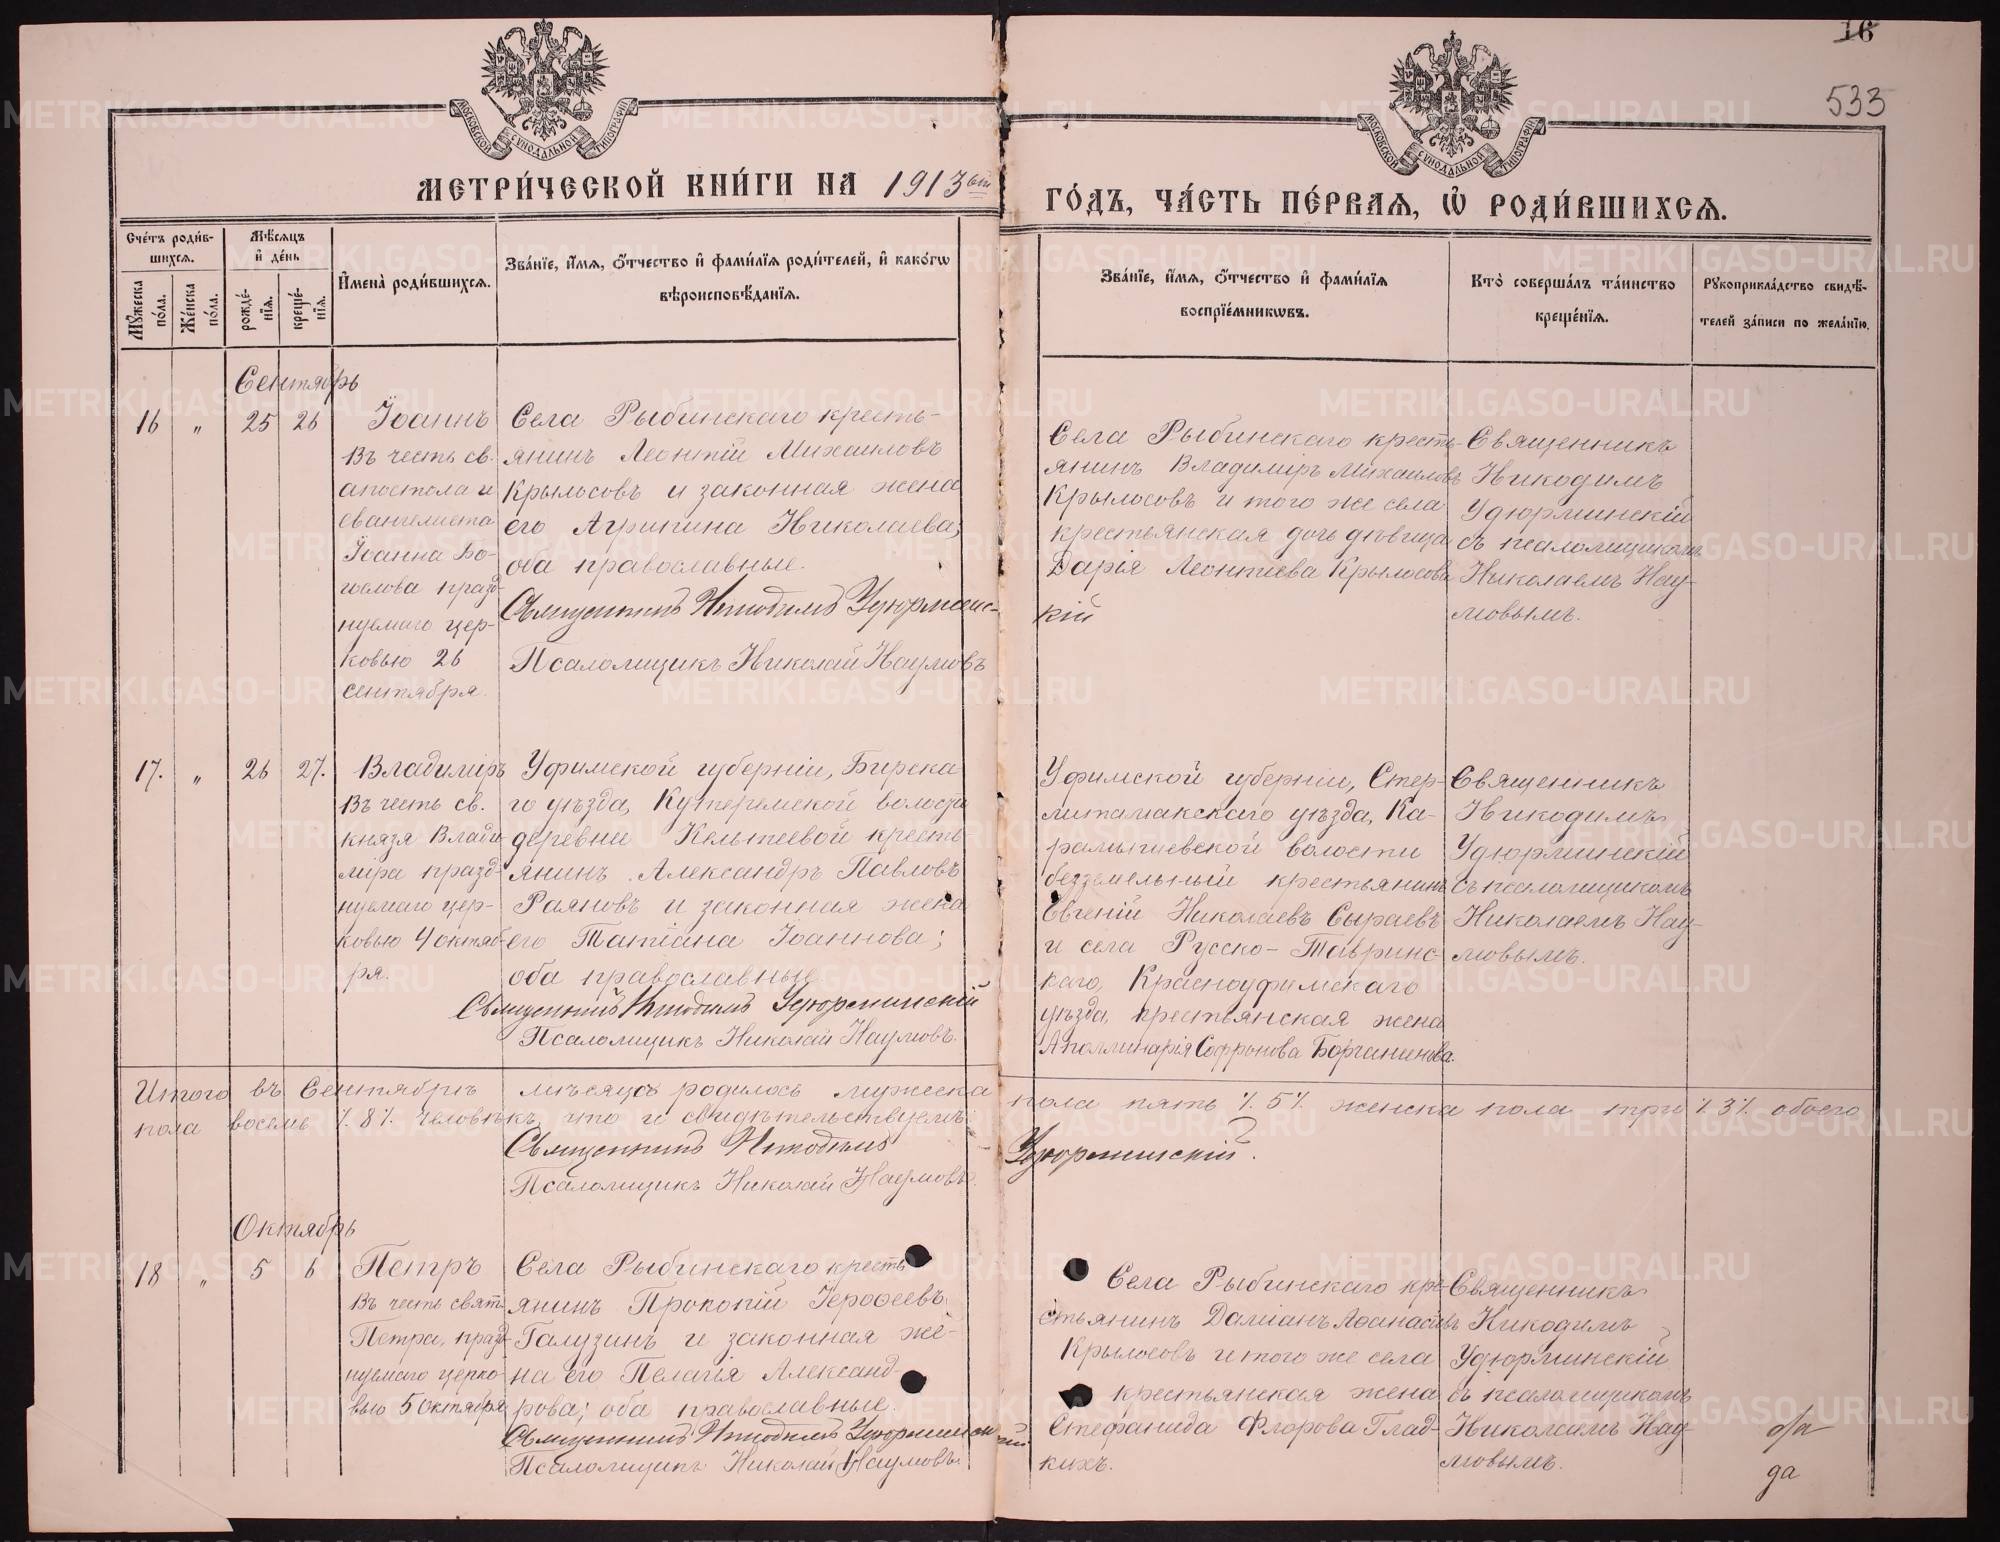 16
533
МОСКОВСКОЙ СѴНОДАЛЬНОЙ ТИПОГРАФІИ
МОСКОВСКОЙ СѴНОДАЛЬНОЙ ТИПОГРАФІИ
МЕТРИ́ЧЕСКОЙ КНИ́ГИ НА 1913ый
ГО́ДЪ, ЧА́СТЬ ПЕ́РВАѦ, Ѽ РОДИ́ВШИХСѦ.
Сче́тъ роди́в-
шихсѧ.
Мѣ́сѧцъ
и҆ де́нь
Мꙋ́жеска
по́ла.
Же́нска
по́ла.
рожде́-
нїѧ.
креще́-
нїѧ.
И҆мена̀ роди́вшихсѧ.
Зва́нїе, и҆́мѧ, ѻ҆́тчество и҆ фами́лїѧ роди́телей, и҆ како́гѡ
вѣроисповѣ́данїѧ.
Зва́нїе, и҆́мѧ, ѻ҆́тчество и҆ фами́лїѧ
воспрїе́мникѡвъ.
Кто̀ соверша́лъ та́инство
креще́нїѧ.
Рꙋкоприкла́дство свидѣ́-
телей за́писи по жела́нїю.
Сентябрь
16 „ 25 26
Іоаннъ
въ честь св.
апостола и
евангелиста
Іоанна Бо-
гослова празд-
нуемаго цер-
ковью 26
сентября.
Села Рыбинскаго кресть-
янинъ Леонтій Михаиловъ
Крылосовъ и законная жена
его Агрипина Николаева;
оба православные.
Священникъ Никодимъ Удюрминс-
кій
Псаломщикъ Николай Наумовъ
Села Рыбинскаго кресть-
янинъ Владиміръ Михаиловъ
Крылосовъ и того же села
крестьянская дочь девица
Дарія Леонтиева Крылосова
Священникъ
Никодимъ
Удюрминскій
съ псаломщикомъ
Николаемъ Нау-
мовымъ.
17. „ 26 27.
Владиміръ
въ честь св.
князя Влади
міра празд-
нуемаго цер-
ковью 4 октяб-
ря.
Уфимской губерніи, Бирска
го уѣзда, Кутеремской волости
деревни Кельтеевой кресть-
янинъ Александръ Павловъ
Раяновъ и законная жена
его Татіана Іоаннова;
оба православные
Священникъ Никодимъ Удюрминскій
Псаломщикъ Николай Наумовъ.
Уфимской губерніи, Стер-
литамакскаго уѣзда, Ка-
волости
безземельный крестьянинъ
Евгеній Николаевъ Сыраевъ
и села Русско-Тавринс-
каго, Красноуфимскаго
уѣзда, крестьянская жена
Аполлинарія Софронова
Священникъ
Никодимъ
Удюрминскій
съ псаломщикомъ
Николаемъ Нау-
мовымъ.
Итого въ Сентябрѣ мѣсяцѣ родилось мужеска пола пять %5% женска пола три %3% обоего
пола восемь %8% человѣкъ, что и свидѣтельствуемъ:
Священникъ Никодимъ Удюрминскій.
Псаломщикъ Николай Наумовъ.
Октябрь
18 „ 5 6
Петръ
въ честь свят.
Петра, празд-
нуемаго церко
вью 5 октября
Села Рыбинскаго кресть
янинъ Прокопій Іерофеевъ
Галузинъ и законная же-
на его Пелагія Александ-
рова; оба православные.
Священникъ Никодимъ Удюрминскій
Псаломщикъ Николай Наумовъ.
Села Рыбинскаго кре-
стьянинъ Даміанъ Аѳанасіевъ
Крылосовъ и того же села
крестьянская жена
Стефанида Флорова Глад-
кихъ.
Священникъ
Никодимъ
Удюрминскій
съ псаломщикомъ
Николаемъ Нау-
мовымъ.
да
METRIKI.GASO-URAL.RU